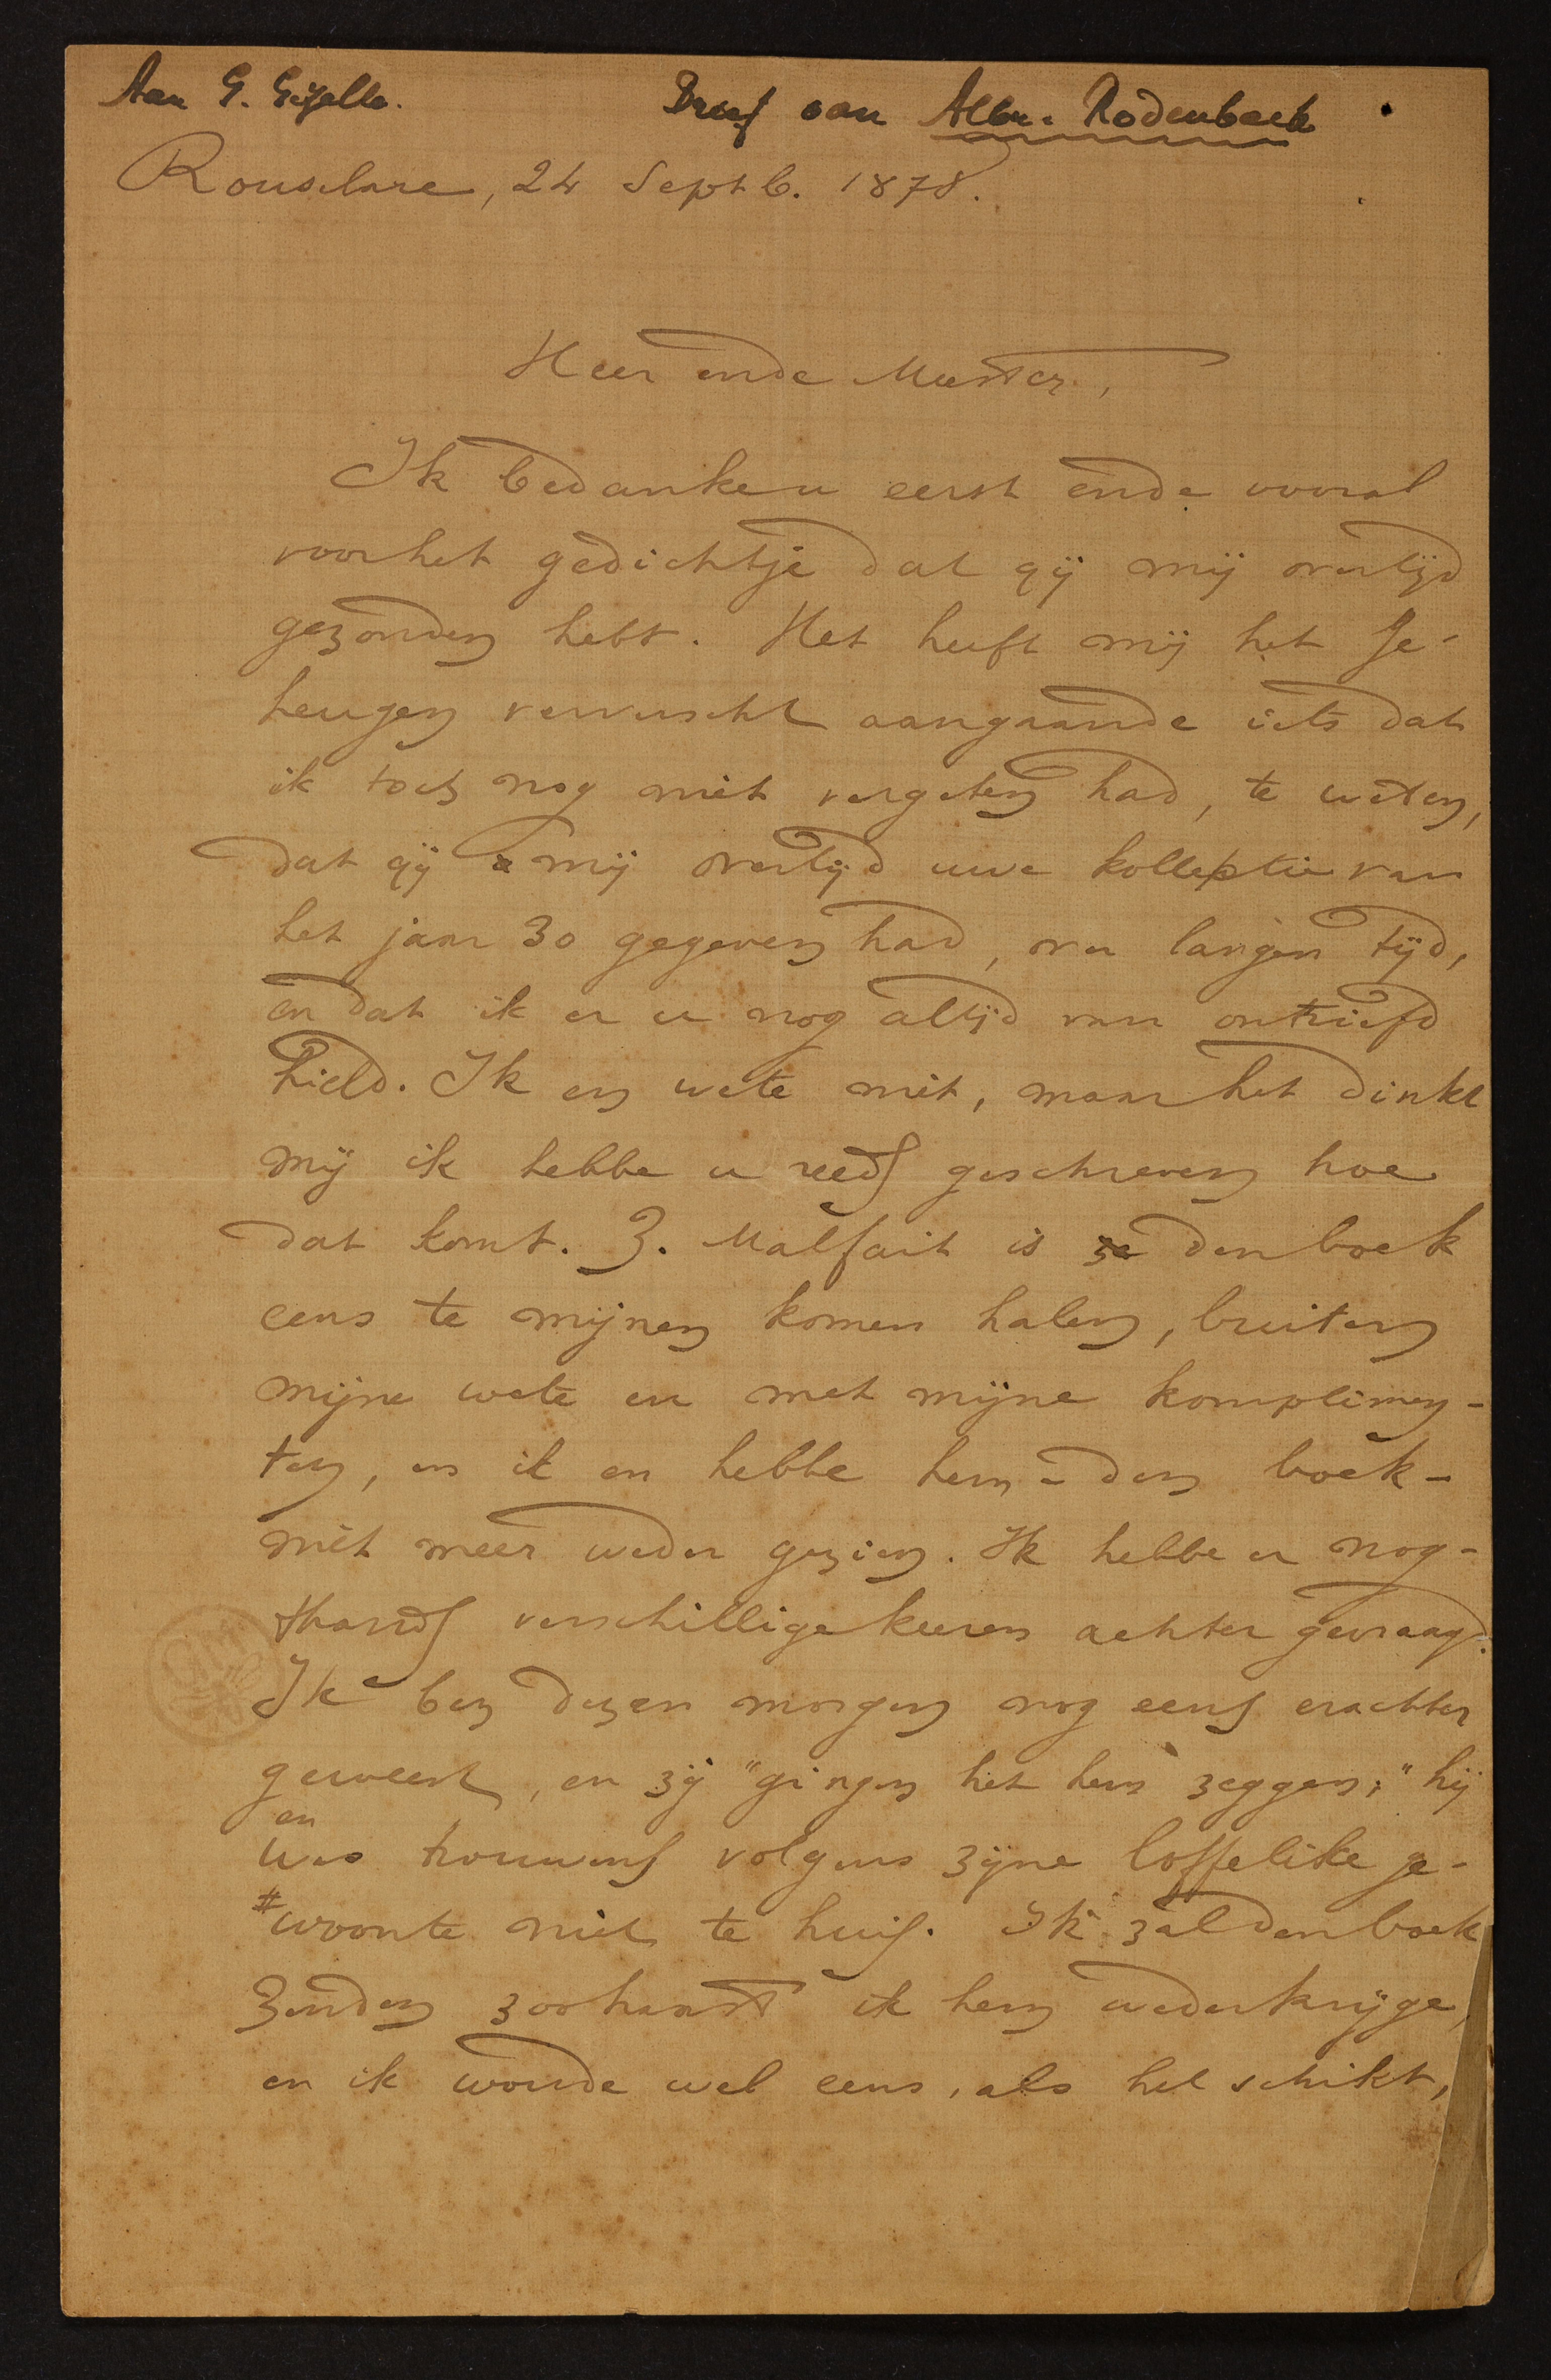 Aan G. Gezelle. Brief van Albr. Rodenbach
Rousselare, 24 Septb. 1878.
Heer ende Meester,
Ik bedanke u eerst ende vooral
voor het gedichtje dat gij mij overtijd
gezonden hebt. Het heeft mij het ge-
heugen vervrischt aangaande iets dat
ik toch nog niet vergeten had, te weten,
dat gij mij overtijd uwe kollektie van
het jaar 30 gegeven had, over langen tijd,
en dat ik er u nog altijd van ontriefd
hield. Ik en wete niet, maar het dinkt
mij ik hebbe u reeds geschreven hoe
dat komt. Z. Malfait is den boek
eens te mijnen komen halen, buiten
mijne wete en met mijne komplimen-
ten, en ik en hebbe hem - den boek -
niet meer weder gezien. Ik hebbe er nog-
thands verschillige keeren achter gevraagd.
Ik ben dezen morgen nog eens erachter
geweest, en zij "gingen het hem zeggen;" hij
en
was trouwens volgens zijne loffelike ge-
#woonte niet te huis. Ik zal den boek
zenden zoohaast ik hem wederkrijge,
en ik woude wel eens, als het schikt,